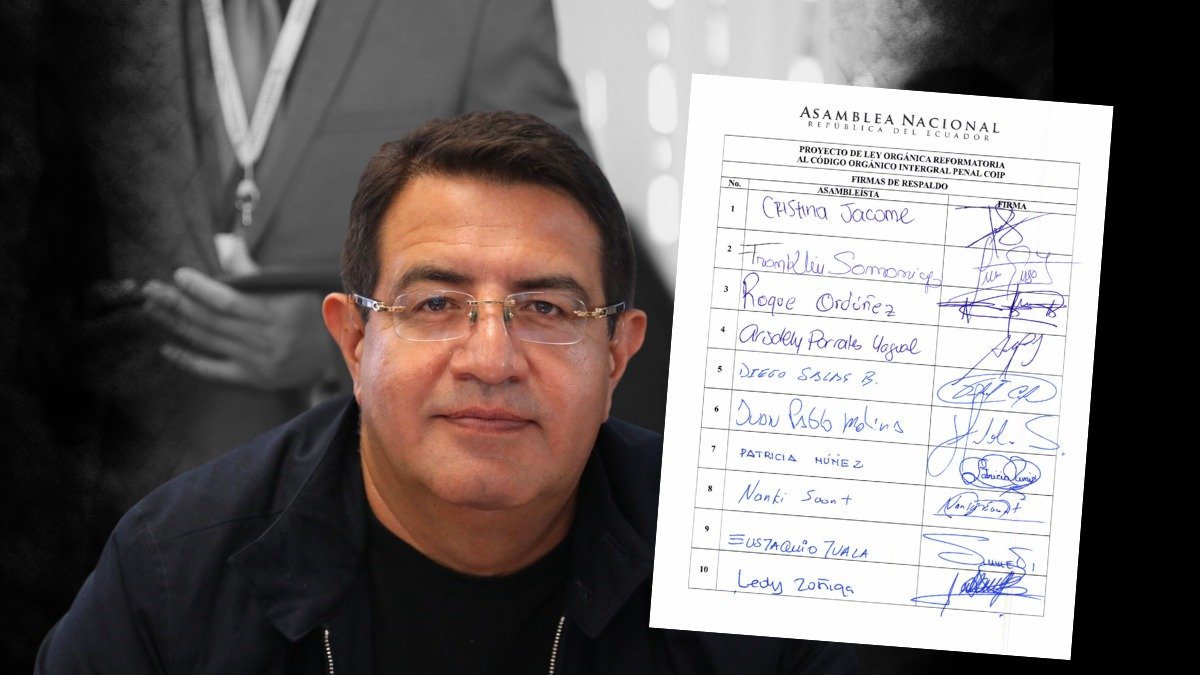 ASAMBLEA NACIONAL
REPÚBLICA DEL ECUADOR
PROYECTO DE LEY ORGÁNICA REFORMATORIA
AL CÓDIGO ORGÁNICO INTERGRAL PENAL COIP
FIRMAS DE RESPALDO
No. ASAMBLEÍSTA FIRMA
1 CRISTINA JACOME
2 Franklin Samaniego
3 Roque Ordóñez
4 Parrales Yagual
5 DIEGO SALAS B.
6 Juan Pablo Molina
7 PATRICIA NÚÑEZ
8 Nanki Saant
9 EUSTAQUIO TUALA
10 Ledy Zúñiga